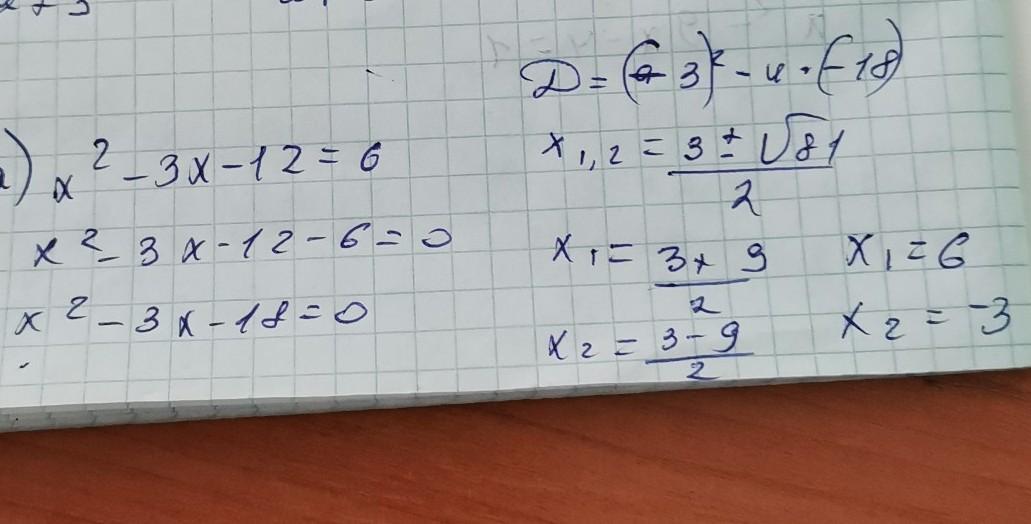 x² - 3x - 12 = 6
x² - 3x - 12 - 6 = 0
x² - 3x - 18 = 0
D = (-3)² - 4 · (-18)
x₁,₂ = (3 ± √81)/2
x₁ = (3 + 9)/2
x₁ = 6
x₂ = (3 - 9)/2
x₂ = -3